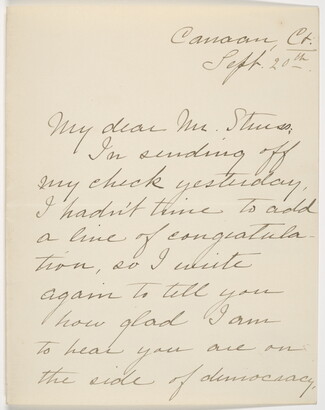 Canaan, Ct.
Sept. 20th
My dear Mr. Struss,
In sending off
my check yesterday,
I hadn't time to add
a line of congratula-
tion, so I write
again to tell you
how glad I am
to hear you are on
the side of democracy.